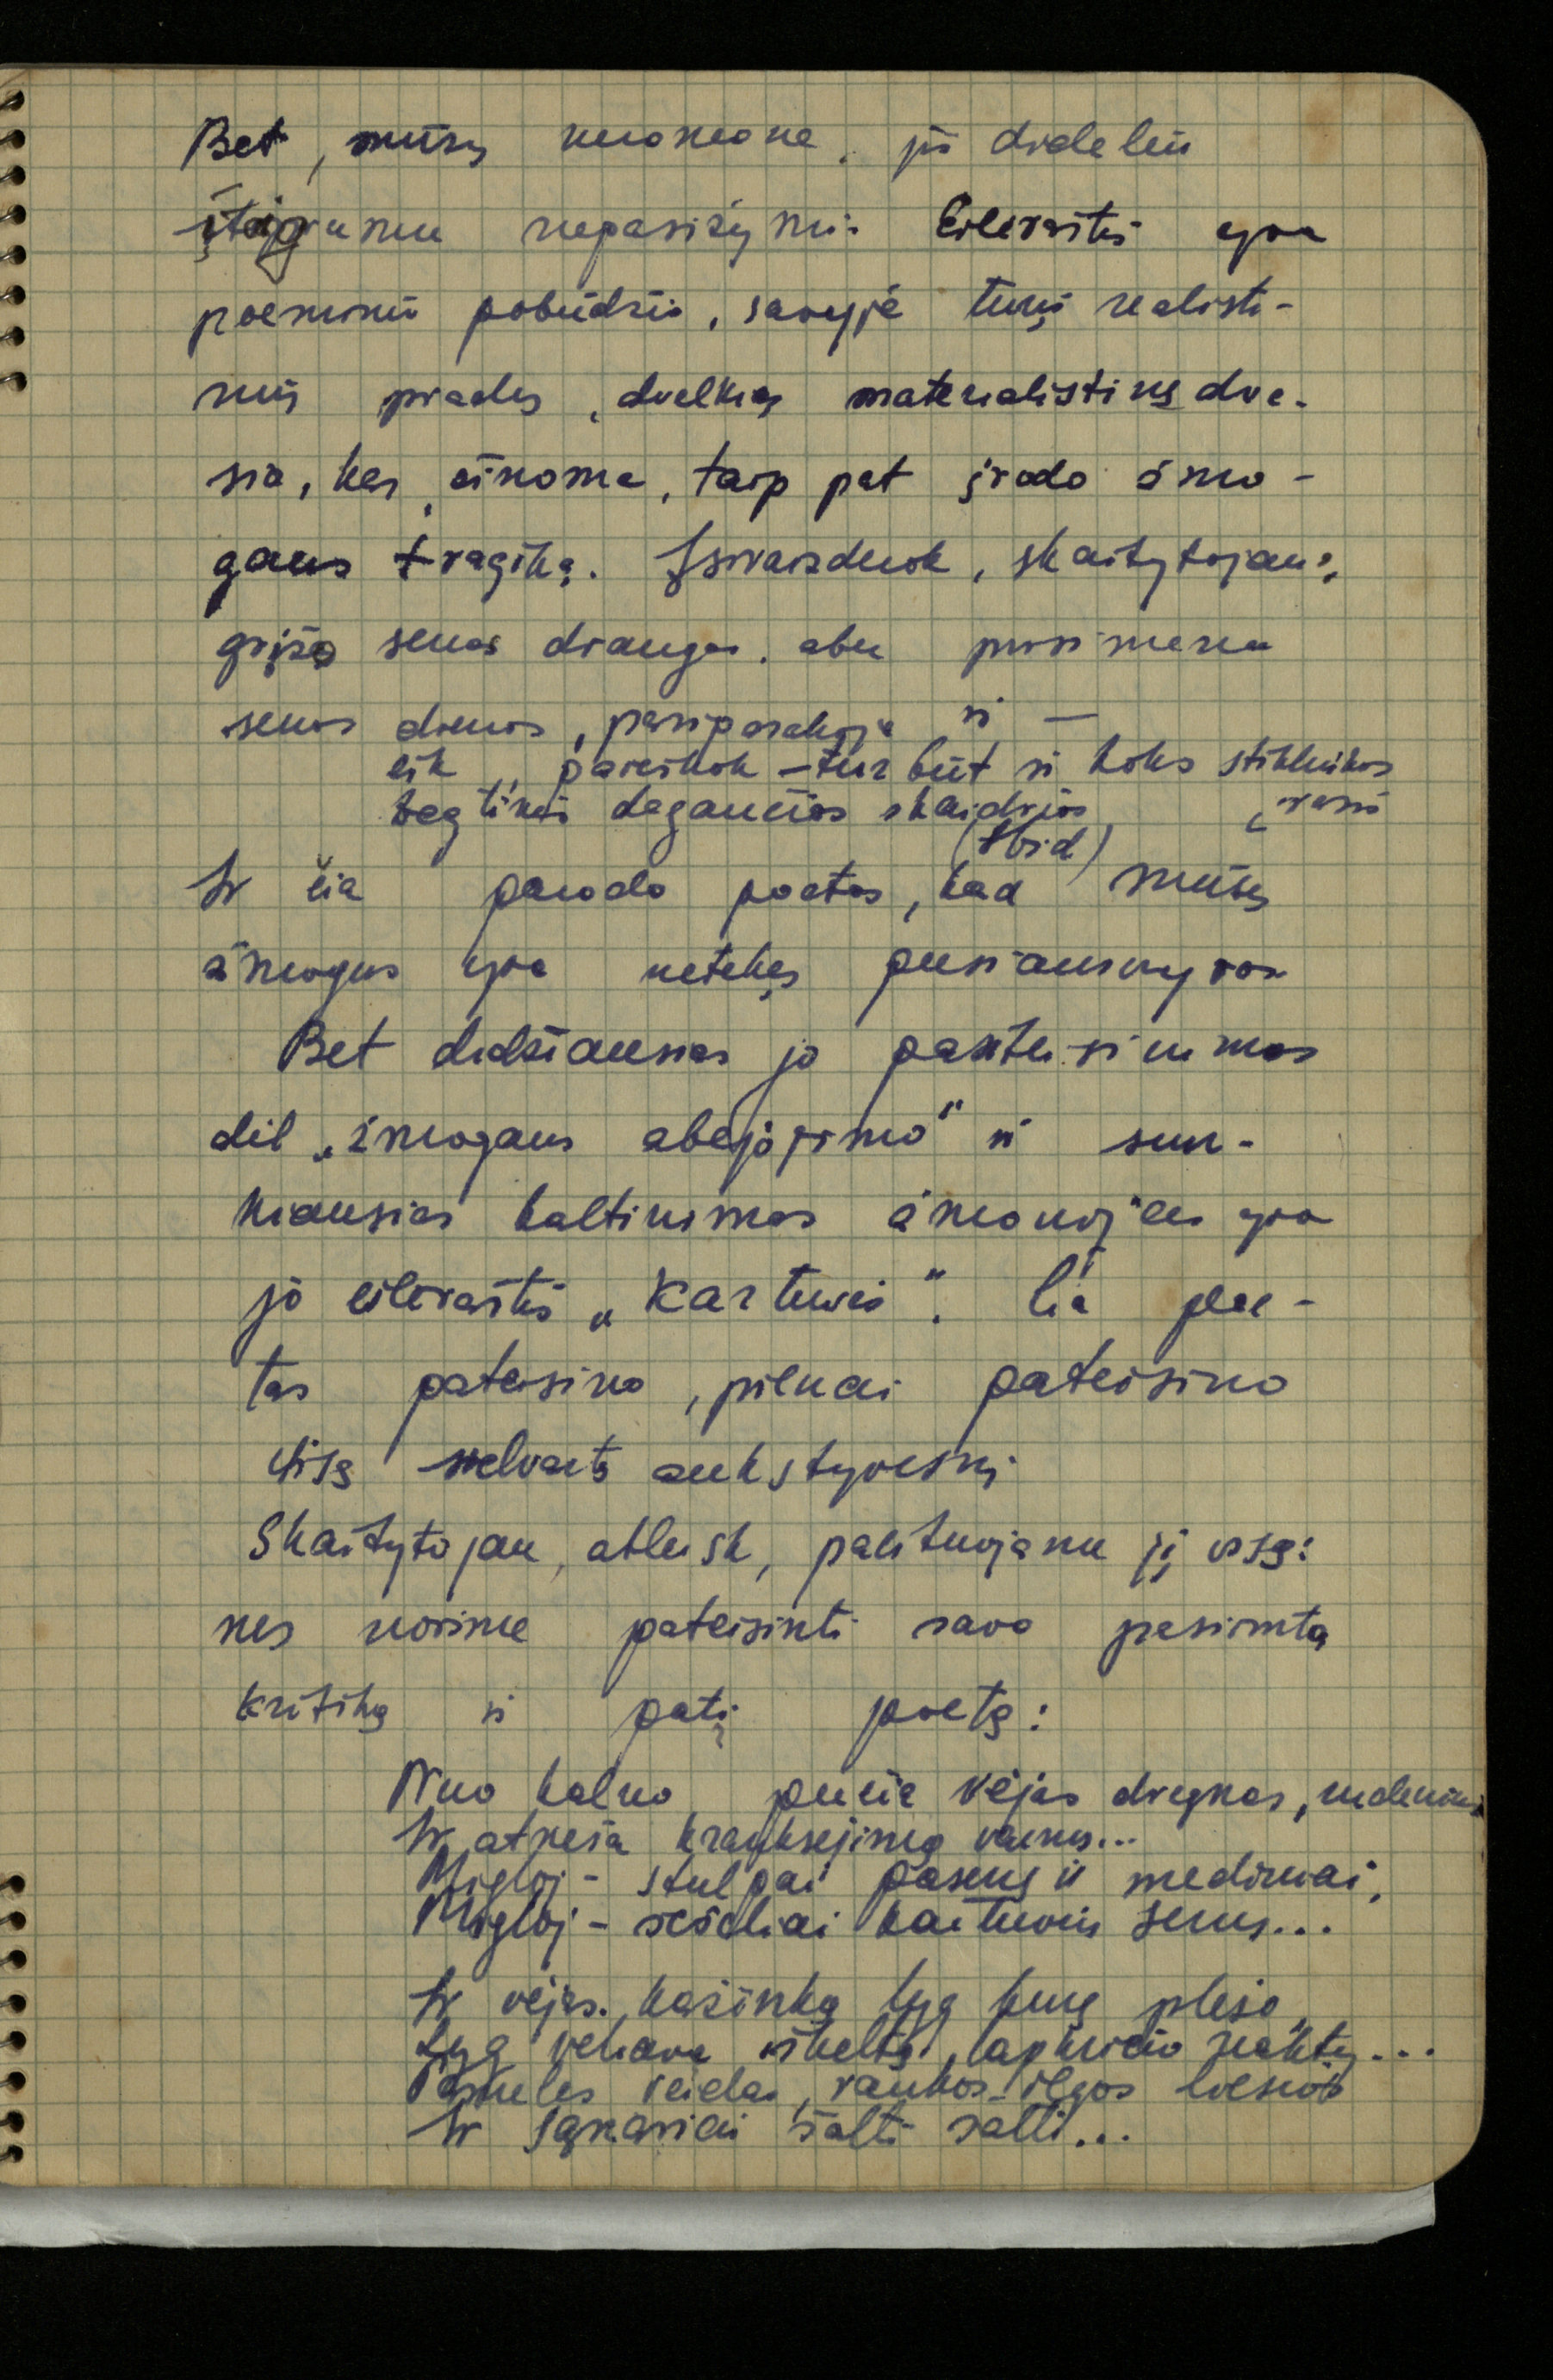 Bet, mūsų nuomone, jis dideliu
įtaigumu nepasižymi. Eilėraštis yra
poeminio pobūdžio, savyje turįs realisti-
nių prades, dvelkiąs materialistine dva-
sia, kas, žinoma, taip pat įrodo žmo-
gaus tragiką. Įsivaizduok, skaitytojau,
grįžo senas draugas. abu prisimena
senas dienas, pasipasakoja ir —
eik, pareikok – tur būt ir koks stikliukas
degtinės degančios skaidrios, rasis
(Ibid)
Ir čia parodo poetas, kad mūsų
žmogus yra netekęs pusiausvyros
Bet didžiausias jo pasiteisinimas
dėl „žmogaus abejojimo" ir sun-
kiausias kaltinimas žmonijai yra
jo eilėraštis „Kartuvės". Čia poe-
tas pateisina, pilnai pateisina
visą aukstyvesnį
Skaitytojau, atleisk, pacituojame jį visą:
nes norime pateisinti savo pasirinktą
kritiką ir patį poetą:
Nuo kalno pučia vėjas drėgnas, rudeninis
Ir atneša kranksėjimą varnų...
Migloj – stulpai pasenę ir mediniai,
Migloj – šešėliai kartuvių senų...
Ir vėjas kažinką lyg kūną plėšo,
Lyg vėliava iškeltą lapkričio naktų...
Pamėlęs veidas, rankos ilgos liesos
Ir sąnariai šalti šalti...